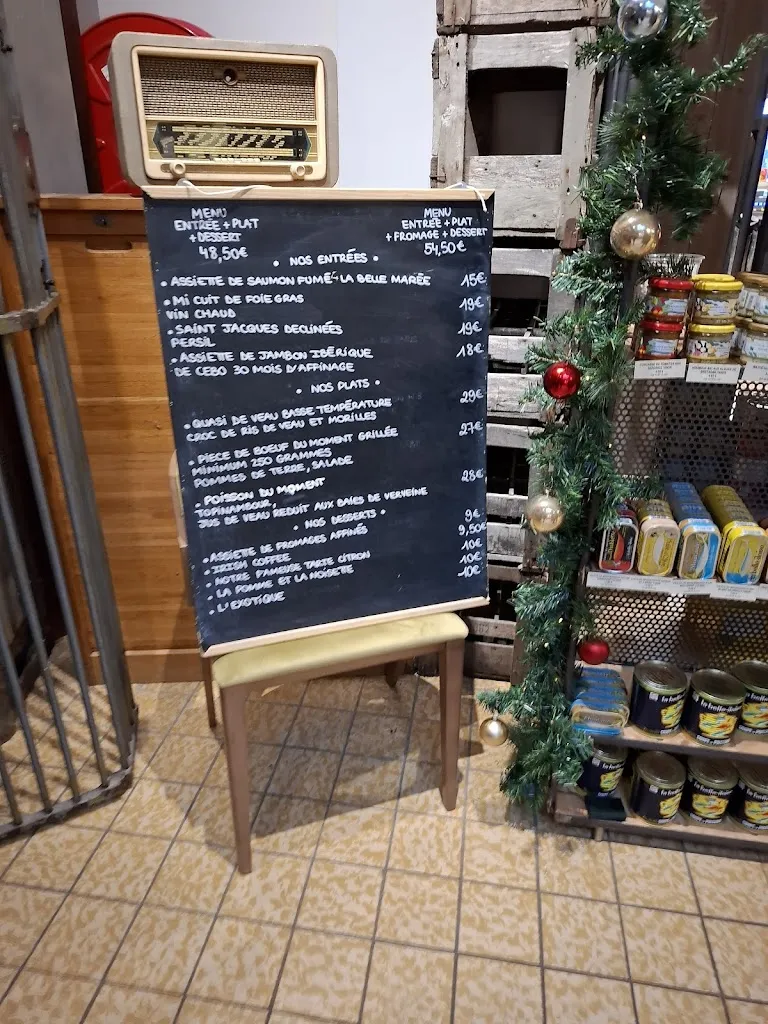 MENU
ENTRÉE + PLAT
+ DESSERT
48,50€
MENU
ENTRÉE + PLAT
+ FROMAGE + DESSERT
54,50€
• NOS ENTRÉES •
• ASSIETTE DE SAUMON FUMÉ - LA BELLE MARÉE 15€
• MI CUIT DE FOIE GRAS 19€
VIN CHAUD
• SAINT JACQUES DECLINÉES 19€
PERSIL
• ASSIETTE DE JAMBON IBÉRIQUE 18€
DE CEBO 30 MOIS D'AFFINAGE
• NOS PLATS •
• QUASI DE VEAU BASSE TEMPÉRATURE 29€
CROC DE RIS DE VEAU ET MORILLES
• PIECE DE BOEUF DU MOMENT GRILLÉE 27€
MINIMUM 250 GRAMMES
POMMES DE TERRE, SALADE
• POISSON DU MOMENT 28€
TOPINAMBOUR,
JUS DE VEAU REDUIT AUX BAIES DE VERVEINE
• NOS DESSERTS •
• ASSIETTE DE FROMAGES AFFINÉS 9€
• IRISH COFFEE 9,50€
• NOTRE FAMEUSE TARTE CITRON 10€
• LA POMME ET LA NOISETTE 10€
• L'EXOTIQUE 10€
la belle-iloise